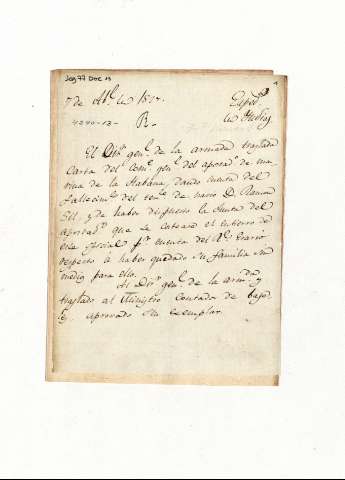 Leg 77 Doc 13
7 de Ab.l de 180
Exped.
de Indias
4240-13-
R.
El Dir.r gen.l de la armada traslada
carta del Com.te gen.l del apost.o de ma-
rina de la Habana, dando cuenta del
fallecim.to del ten.te de navio D. Ramon
y de haber dispuesto la Junta del
apostad.o que se costease el entierro de
este oficial p.r cuenta del R.l Erario
respecto à haber quedado su familia sin
medios para ello.
Al Dir.r gen.l de la arm.da y
traslado al Ministro Contador de
aprovado sin exemplar.